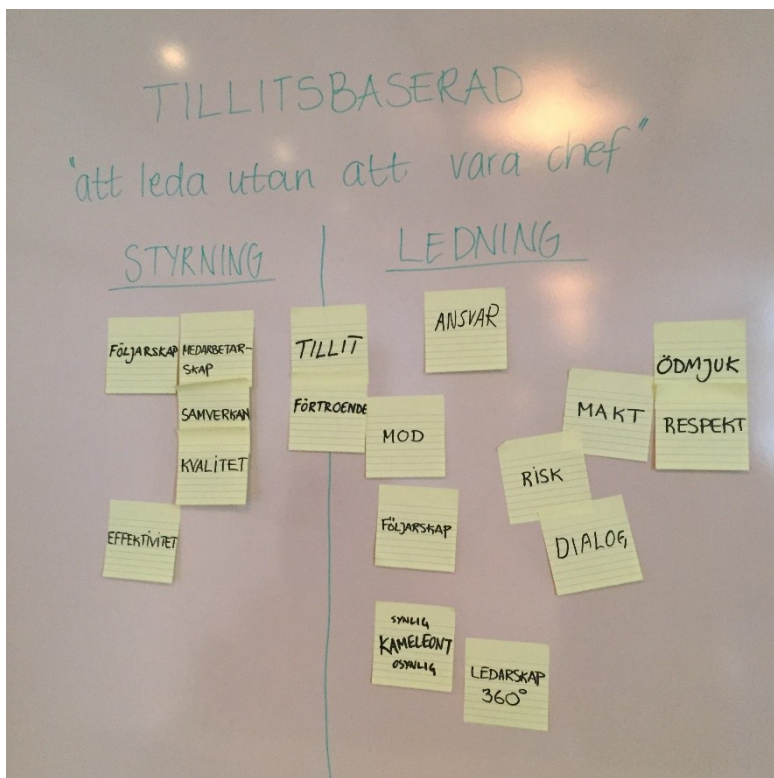 TILLITSBASERAD
"att leda utan att vara chef"
STYRNING
LEDNING
FÖLJARSKAP
MEDARBETAR-
SKAP
SAMVERKAN
KVALITET
EFFEKTIVITET
TILLIT
FÖRTROENDE
ANSVAR
MOD
FÖLJARSKAP
SYNLIG
KAMELEONT
OSYNLIG
LEDARSKAP
360°
RISK
MAKT
DIALOG
ÖDMJUK
RESPEKT